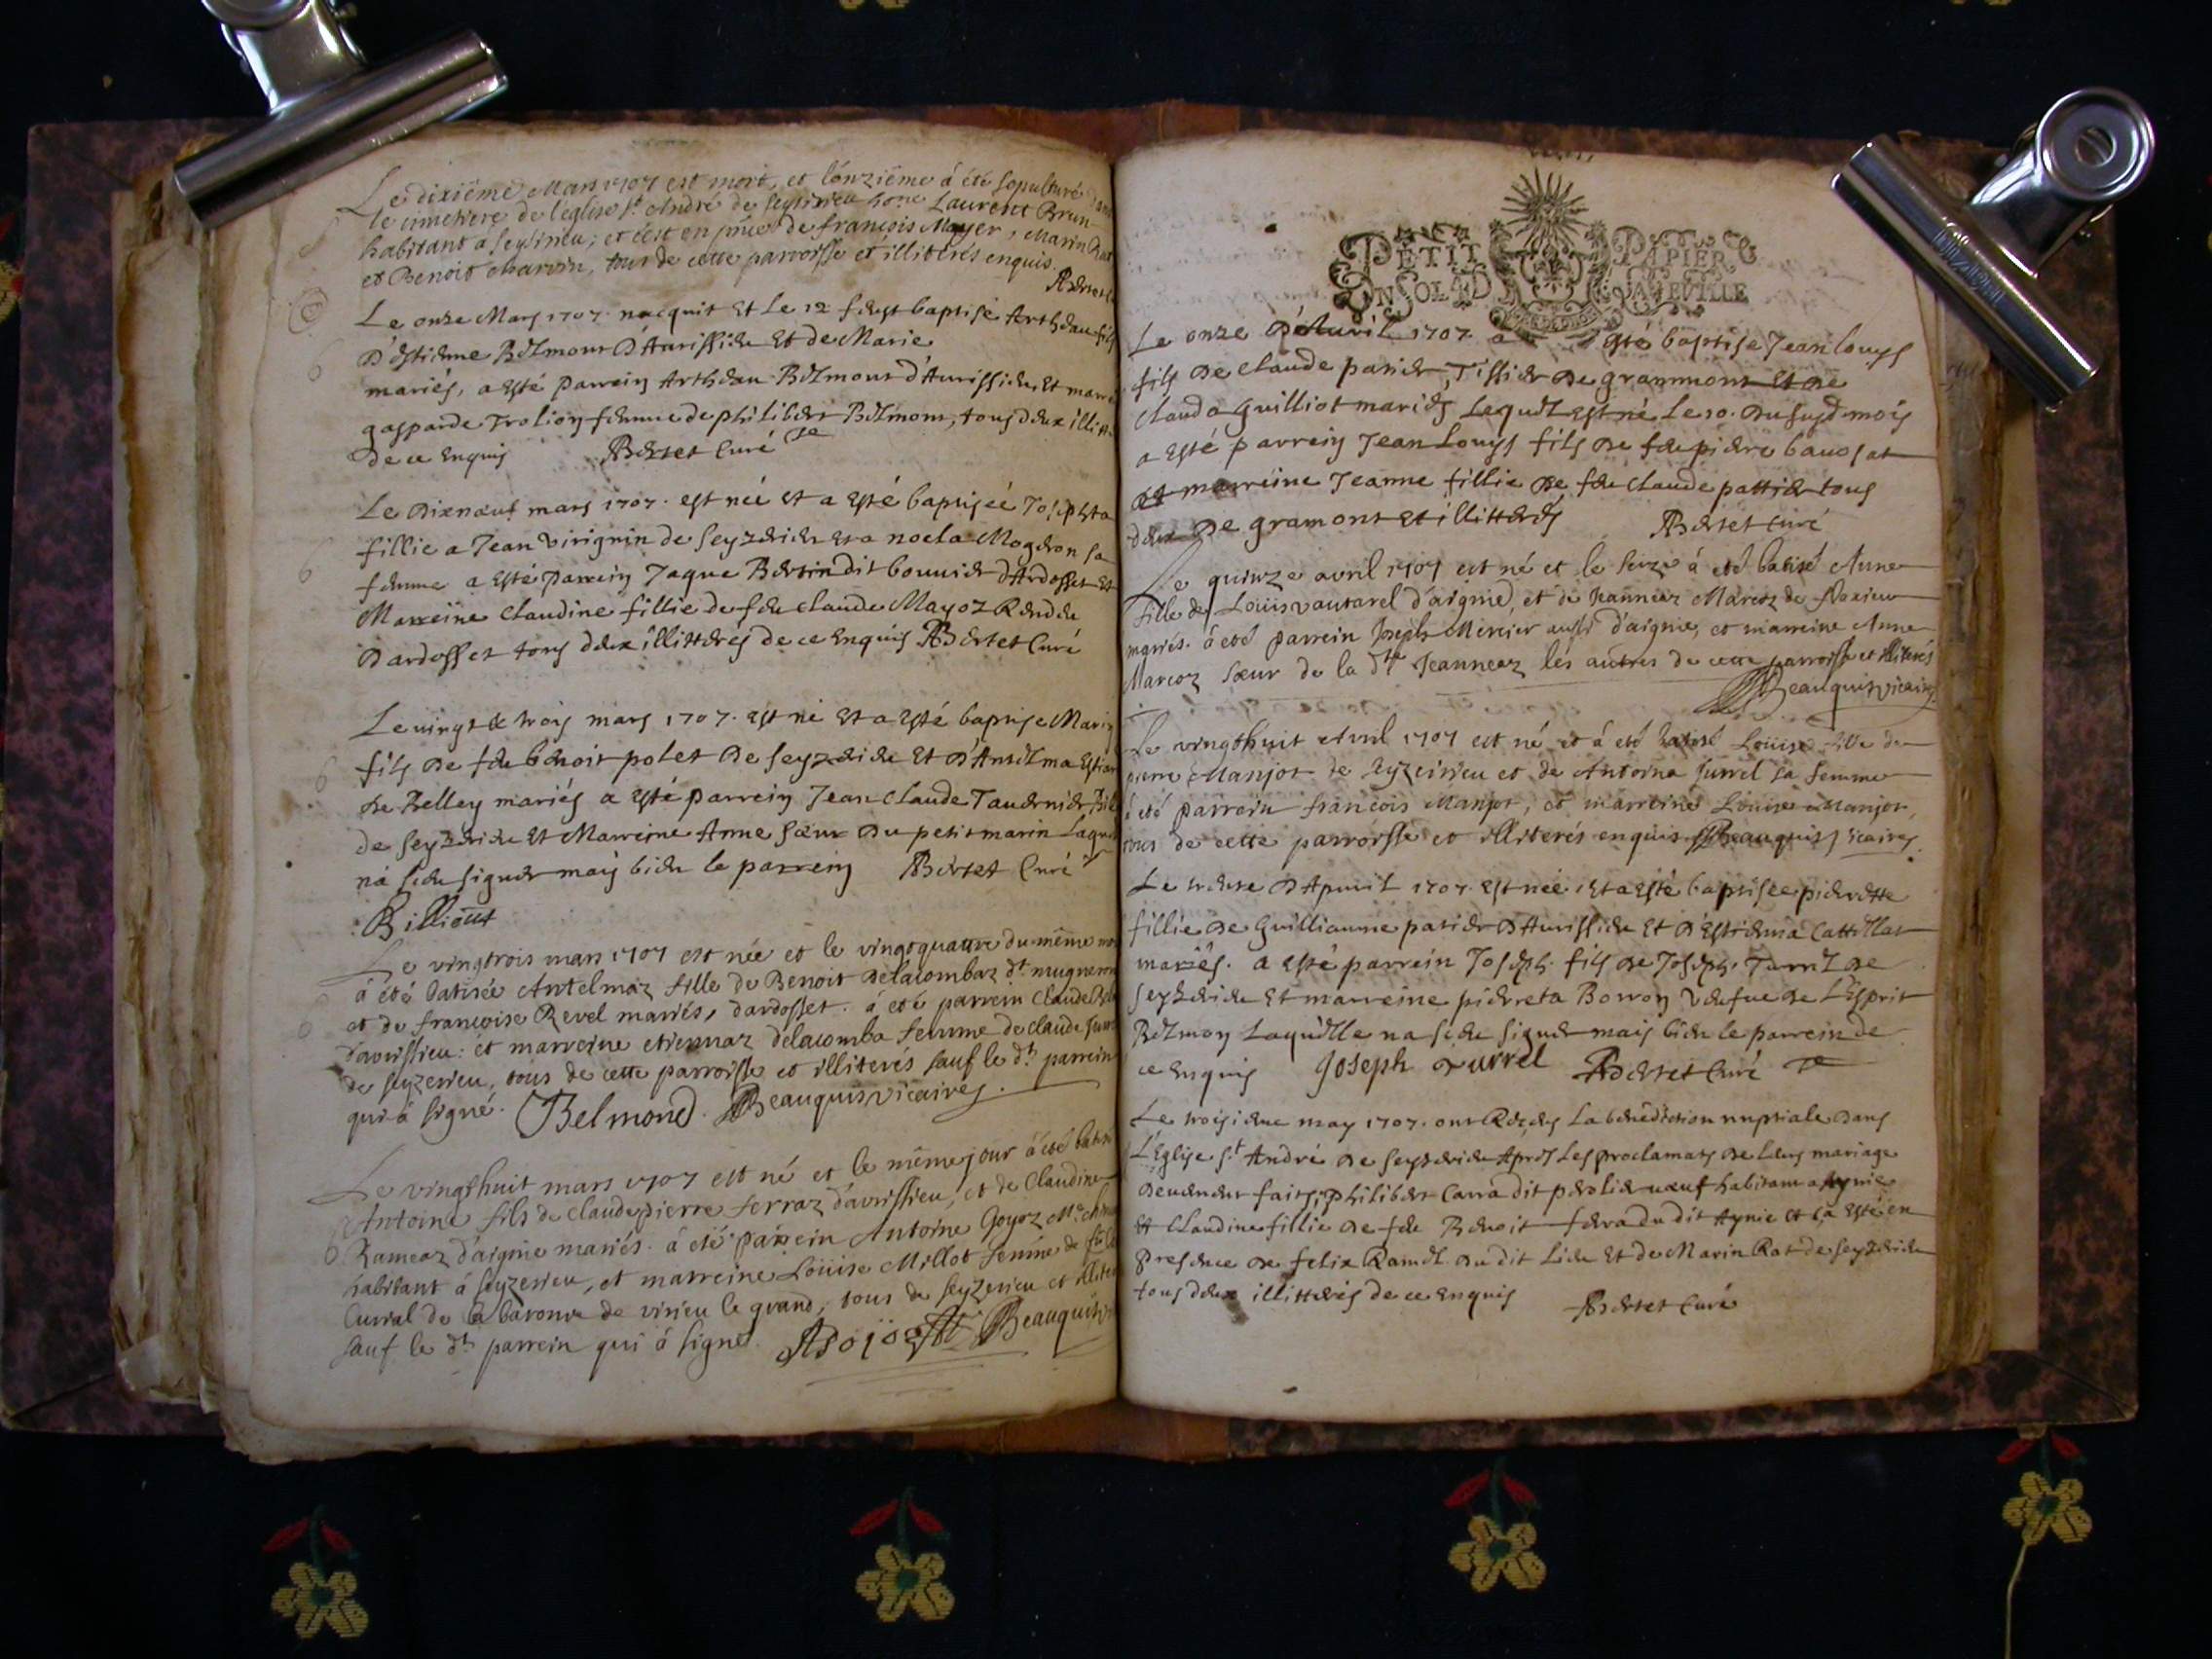 Le dixiême Mars 1707 est mort, et l'onziême á été sepulturé dans
le cimetiere de l'église st André de Seyzirieu Laurent Brun
habitant a Seyzirieu; et c'est en de françois Mayer, Marin Rat
et Benoit charvin, tous de cette parroisse et illiterés enquis
Le onze Mars 1707 nacquit Et Le 12 feust baptisé Arthdau fils
D'Estienne Belmont D'Avrissieu Et de Marie
mariés, a Esté parrein Arthdau Belmont d'Avrissieu, Et marr
gasparde Trolion femme de philibert Belmont, tous deux illitt
de ce Enquis ABertet Curé
Le Dixneuf mars 1707. est née et a Esté baptisée Josephta
fillie a Jean Virignin de Seyzerieu et a noela Mogeron sa
femme a Esté parrein Jaque Bertin dit bouvier d'Ardosset Et
Marreine Claudine fillie de feu Claude Mayoz Rendu
Dardosset tous deux illitterés de ce Enquis ABertet Curé
Le vingt & trois mars 1707. est né Et a Esté baptisé Marin
fils De feu benoit polet De Seyzerieu Et d'Antelma
De Belley mariés a Esté parrein Jean Claude Tavernier
de Seyzerieu Et Marreine Anne Soeur Du petit marin Laque
na sceu signer mais bien le parrein ABertet Curé
Billiout
Le vingtrois mars 1707 est née et le vingtquattre du même
á été batisée Antelmaz fille de Benoit Delacombaz dt mugnerin
et de françoise Revel mariés, dardosset. á été parrein Claude
d'avrissieu: et marreine etiennaz delacomba femme de claude
de Seyzerieu, tous de cette parroisse et illiterés sauf le dt parrein
qui á signé. Belmond. Beauquis vicaire.
Le vingthuit mars 1707 est né et le même jour á été batisé
Antoine fils de Claude pierre ferraz d'avrissieu, et de Claudine
Rameaz d'aignie mariés. á été parrein Antoine Goyoz
habitant á Seyzerieu, et marreine Louise Millot femme de
Curral de la baronie de virieu le grand, tous de Seyzerieu et illiter
sauf le dt parrein qui á signé. Beauquis
PETIT PAPIER
UN SOL LA FEUILLE
Le onze D'Avril 1707. a Esté baptisé Jean louys
fils De Claude patier, Tissier De grammont Et De
Clauda Guilliot mariés Lequel est né Le 10. Du susd. mois
a Esté parrein Jean Louys fils De feu pierre bavosat
Et marreine Jeanne fillie De feu Claude pattier tous
deux De gramont Et illitterés ABertet Curé
Le quinze avril 1707 est né et le seize á été batisé Anne
fille de Louis vautarel d'aignie, et de Jeanneaz Marcoz de flaxieu
mariés. á été parrein Joseph Mercier aussi d'aignie, et marreine Anne
Marcoz soeur de la dte Jeanneaz les autres de cette parroisse et illiterés
Beauquis vicaire
Le vingthuit Avril 1707 est né et á été batisé Louise fille de
pierre Manjot de Seyzerieu et de Antoina Surrel sa femme
á été parrein francois Manjot, et marreine Louise Manjot,
tous de cette parroisse et illiterés enquis Beauquis vicaire
Le trente D'Apvril 1707. est née et a Esté baptisée pierrette
fillie De Guilliaume patier D'Avrissieu Et D'Estiena Cattillat
mariés. a Esté parrein Joseph fils De Joseph Turrel De
Seyzerieu Et marreine pierreta Borron Veufue De L'Esprit
Belmon Laquelle na sceu signer mais bien le parrein de
ce Enquis Joseph Turrel ABertet Curé
Le troisieme may 1707. ont Receu La bénédiction nuptiale Dans
L'Eglise st André De Seyzerieu Après Les proclamats De Leurs mariage
Deuement faits, philibert Carra dit perolie veuf habitant a Aynie
Et Claudine fillie De feu Benoit fera du dit Aynie et ça Esté en
présence De felix Ramel Du dit Lieu Et De Marin Rat de Seyzerieu
tous deux illitterés de ce Enquis ABertet Curé